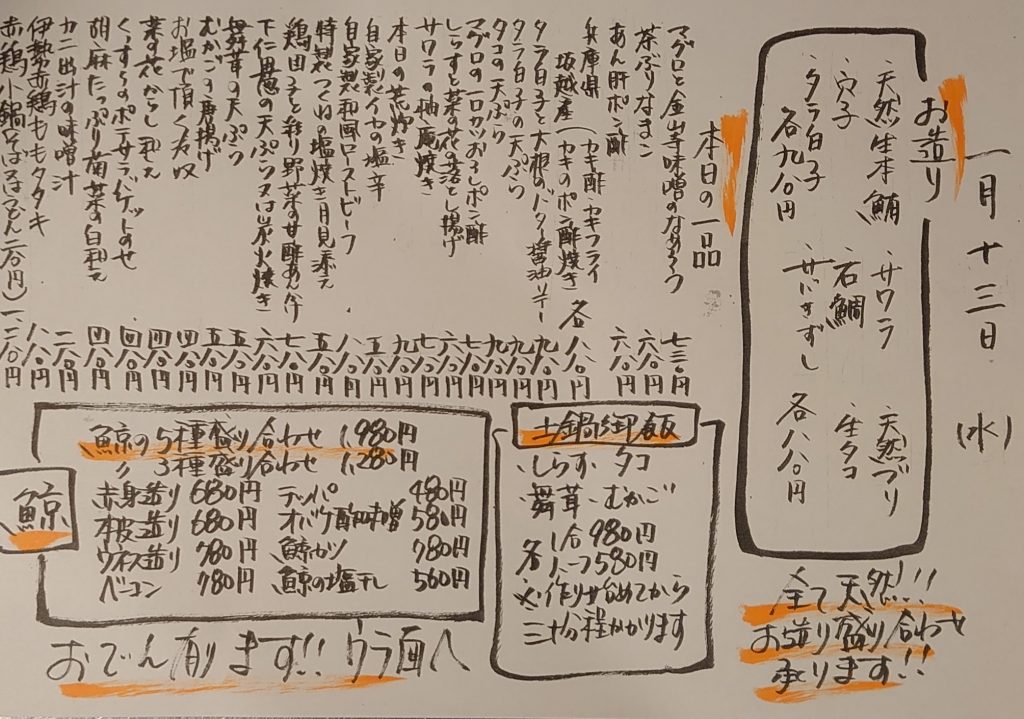 一月十三日(水)
お造り
天然生本鮪 サワラ 天然ブリ
穴子 石鯛 生タコ
タラ白子 サバきずし
各九八〇円 各八八〇円
全て天然!!!
お造り盛り合わせ
承ります!!
本日の一品
マグロと金山寺味噌のなめろう 七三〇円
茶ぶりなまこ 六八〇円
あん肝ポン酢 六八〇円
兵庫県坂越産(カキ酢・カキフライ
(カキのポン酢焼き) 各八八〇円
タラ白子と大根のバター醤油ソテー 九八〇円
タラ白子の天ぷら 九八〇円
タコの天ぷら 九八〇円
マグロの一口カツおろしポン酢 七八〇円
しらすと菜の花のかき揚げ 六八〇円
サワラの柚庵焼き 七八〇円
本日の荒炊き 九八〇円
自家製イカの塩辛 五八〇円
自家製和風ローストビーフ 八八〇円
特製つくねの塩焼き月見添え 五八〇円
鶏団子と彩り野菜の甘酢あん仕 七八〇円
下仁田葱の天ぷら又は炭火焼き 六八〇円
舞茸の天ぷら 五八〇円
むかごの唐揚げ 五八〇円
お塩で頂く冷奴 四八〇円
菜の花からし和え 四八〇円
くんすらのポテサラバケットのせ 四八〇円
胡麻たっぷり菊菜の白和え 四八〇円
カニ出汁の味噌汁 二八〇円
伊勢赤鶏ももタタキ 八八〇円
赤鶏小鍋(そば又はうどん二八〇円) 一、二八〇円
土鍋御飯
・しらす・タコ
・舞茸・むかご
各 一合980円
ハーフ580円
※作り始めてから
三十分程かかります
鯨
鯨の5種盛り合わせ 1,980円
〃 3種盛り合わせ 1,280円
赤身造り 680円 テッパ 480円
本皮造り 680円 オバケ酢味噌 580円
ウネス造り 780円 鯨カツ 780円
ベーコン 780円 鯨の塩干し 560円
おでん有ります!! ウラ面へ